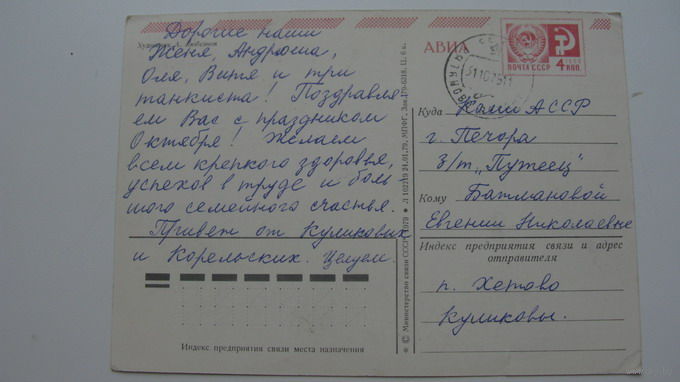 Дорогие наши
Женя, Андрюша,
Оля, Витя и три
танкиста! Поздравля
ем Вас с праздником
Октября! Желаем
всем крепкого здоровья,
успехов в труде и боль
шого семейного счастья.
Привет от Куликовых
и Корельских. Целуем.
Индекс предприятия связи места назначения
© Министерство связи СССР, 1979
АВИА
ПОЧТА СССР
4 КОП.
Куда Коми АССР
г. Печора
З/т „Путеец"
Кому Батмановой
Евгении Николаевне
Индекс предприятия связи и адрес
отправителя
п. Хетово
Куликовы.